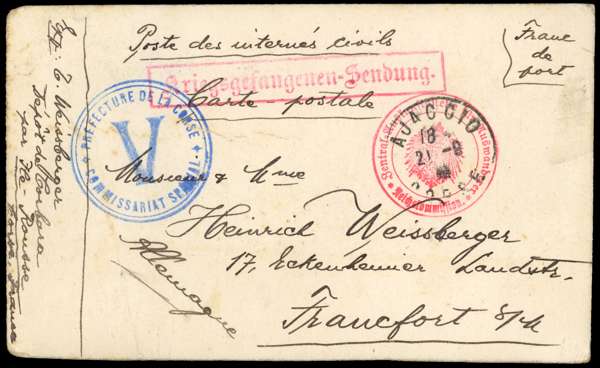 Poste des internés civils
Franc
de
port
Kriegsgefangenen-Sendung.
Carte postale
PREFECTURE DE LA CORSE
COMMISSARIAT SPECIAL
V
AJACCIO
18
21
CORSE
Monsieur & Mme
Heinrich Weissberger
17, Eckenheimer Landstr.
Francfort s/M
Allemagne
Exp: E. Weissberger
Dépôt de Corbara
par Ile Rousse
Corse France